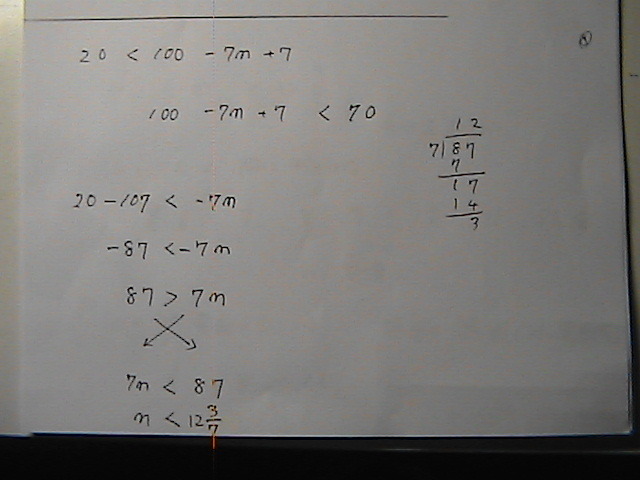 20 < 100 - 7n + 7
100 - 7n + 7 < 70
20 - 107 < - 7n
- 87 < - 7n
87 > 7n
7n < 87
n < 12 3/7
12
7)87
7
17
14
3